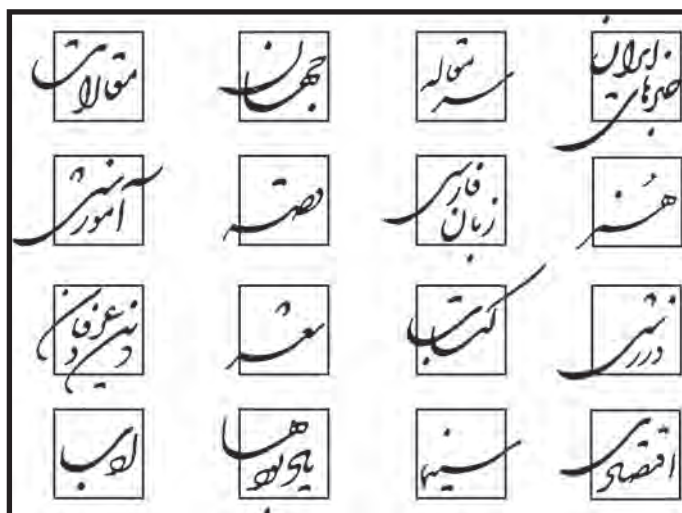 خبرهای ایران
سرمقاله
جهان
مقالات
هنر
زبان فارسی
قصه
آموزشی
ورزشی
کتاب
شعر
دین و عرفان
اقتصادی
سینما
ادب